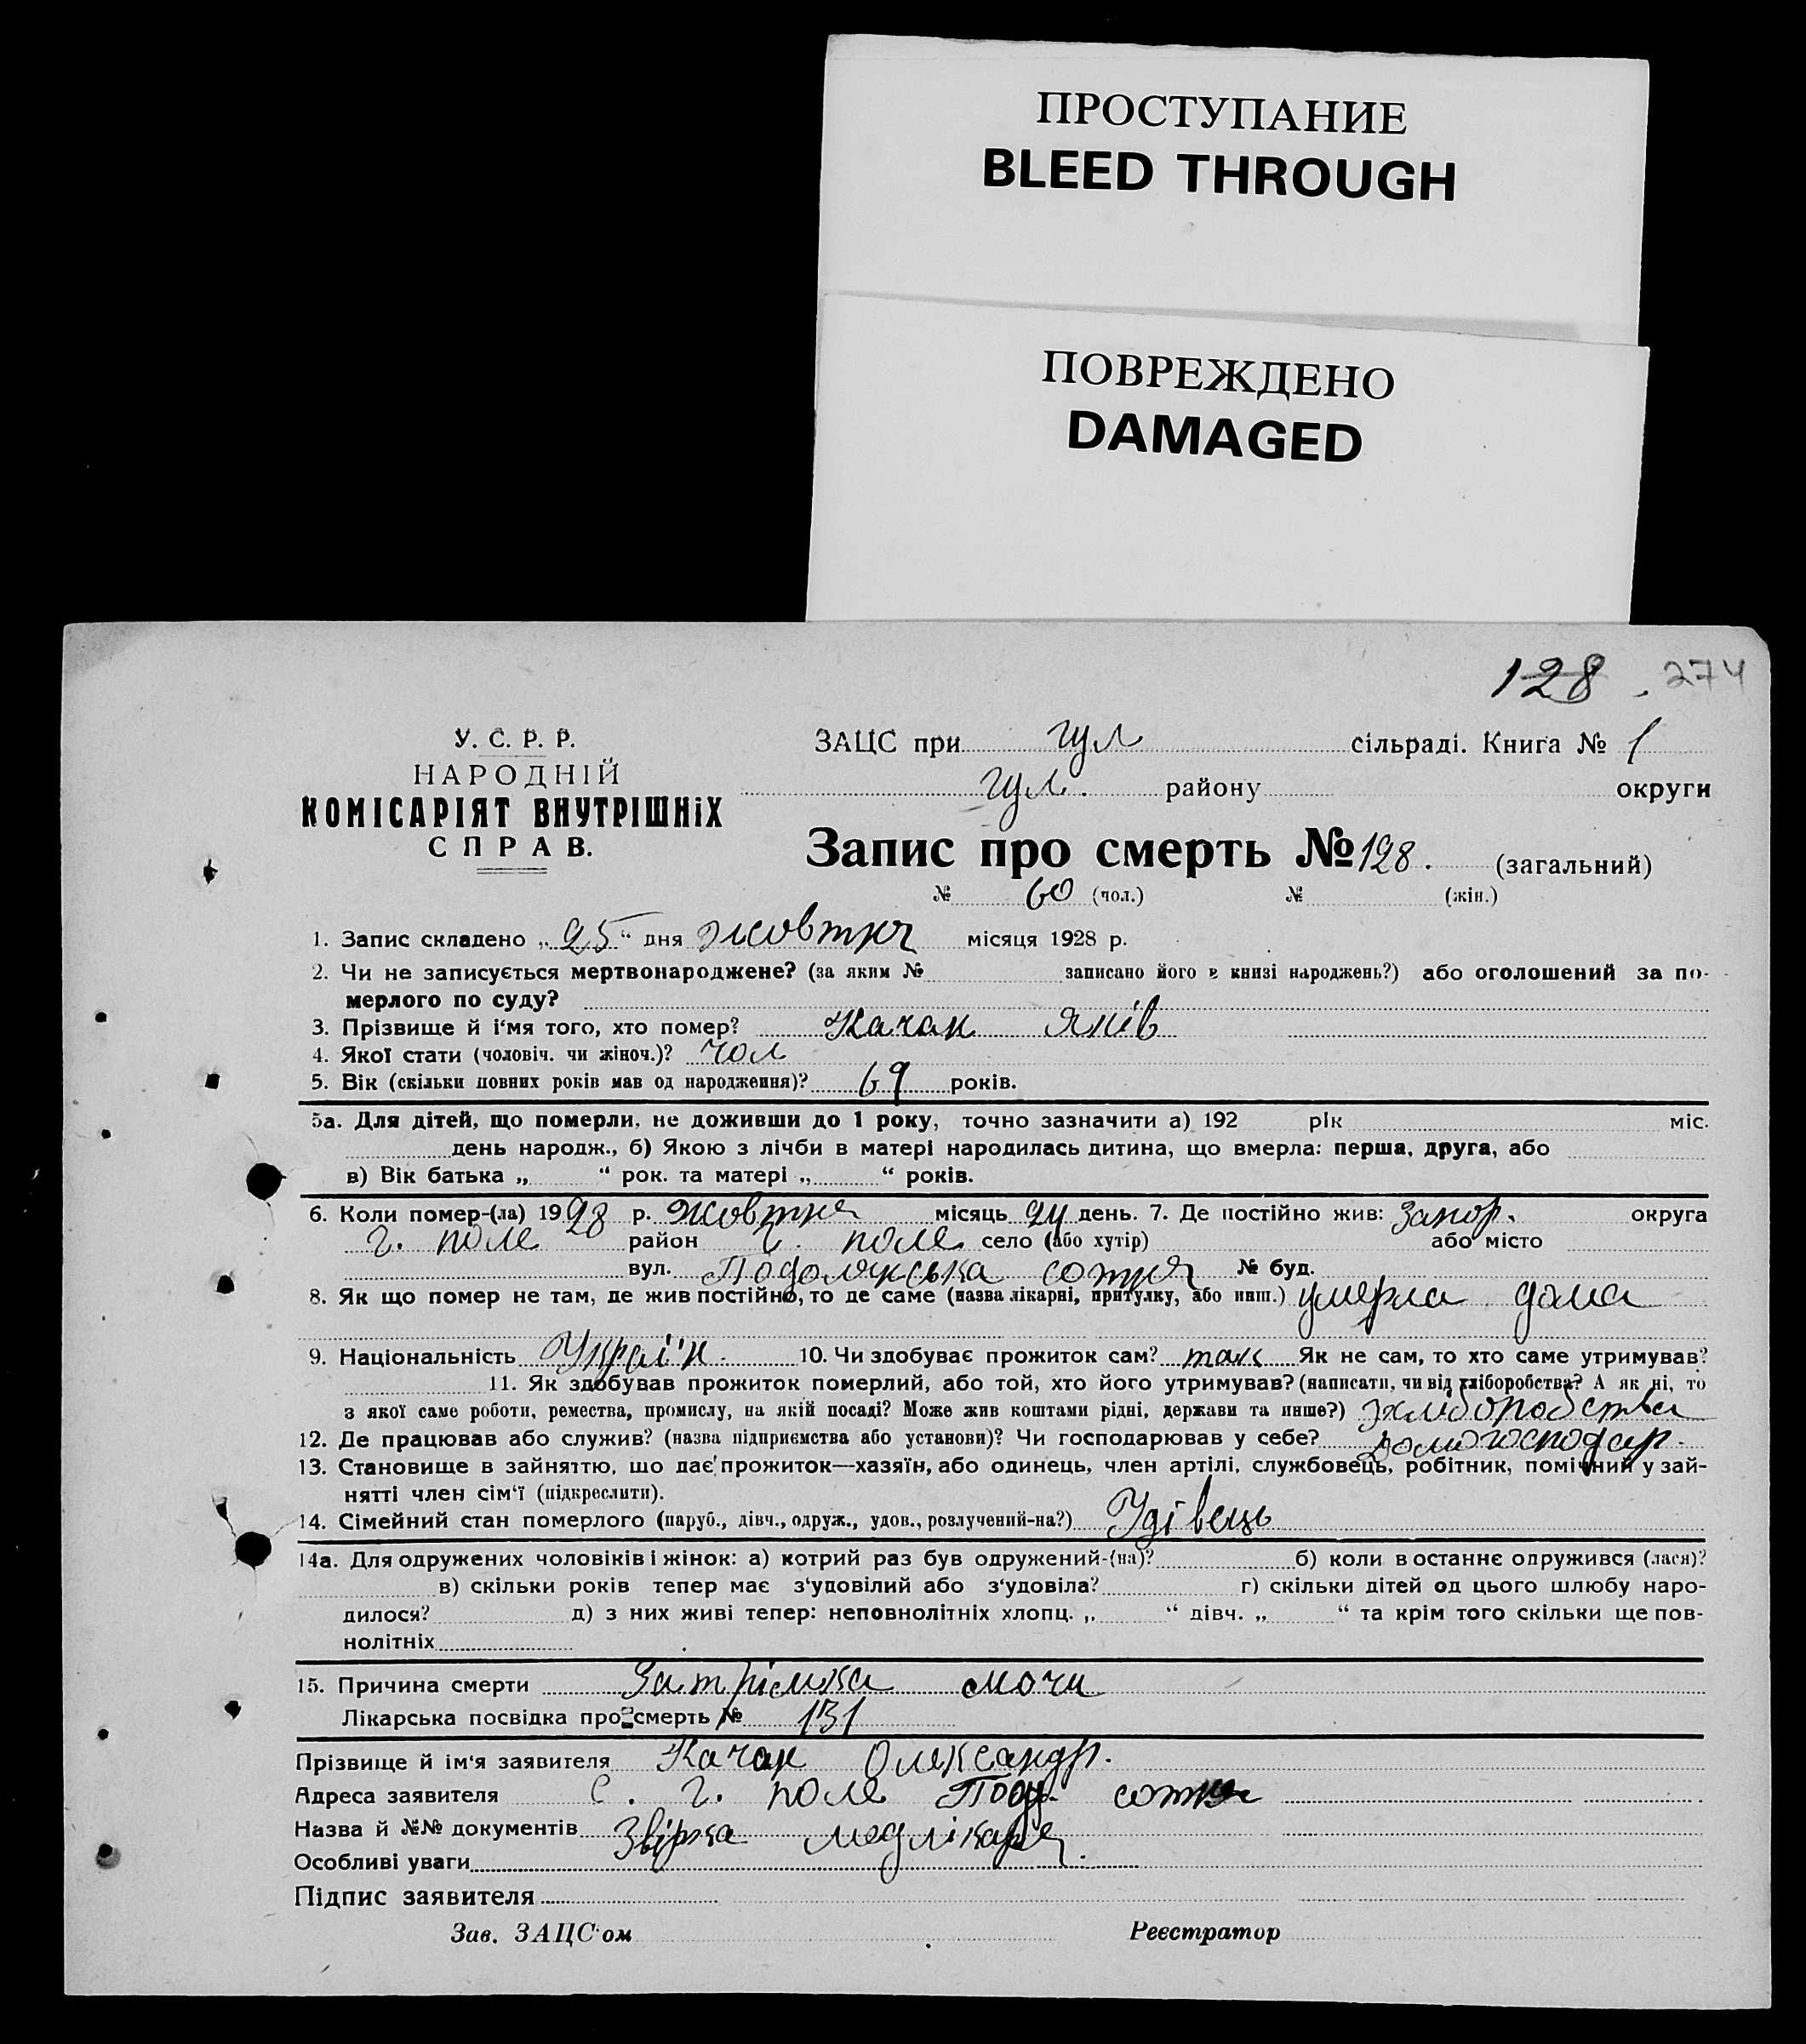 ПРОСТУПАНИЕ
BLEED THROUGH
ПОВРЕЖДЕНО
DAMAGED
128 . 274
У. С. Р. Р.
НАРОДНІЙ
КОМІСАРІЯТ ВНУТРІШНіХ
СПРАВ.
ЗАЦС при гул сільраді. Книга № 1
гул. району округи
Запис про смерть № 128. (загальний)
№ 60 (чол.) № (жін.)
1. Запис складено „ 25 “ дня жовтня місяця 1928 р.
2. Чи не записується мертвонароджене? (за яким № записано його в книзі народжень?) або оголошений за по-
мерлого по суду?
3. Прізвище й і‘мя того, хто помер? Качан Яків
4. Якої стати (чоловіч. чи жіноч.)? чол
5. Вік (скільки повних років мав од народження)? 69 років.
5а. Для дітей, що померли, не доживши до 1 року, точно зазначити а) 192 рік міс.
день народж., б) Якою з лічби в матері народилась дитина, що вмерла: перша, друга, або
в) Вік батька „ “ рок. та матері „ “ років.
6. Коли помер-(ла) 1928 р. жовтня місяць 24 день. 7. Де постійно жив: Запор. округа
Г. поле район Г. поле село (або хутір) або місто
вул. Подолянська сотня № буд.
8. Як що помер не там, де жив постійно, то де саме (назва лікарні, притулку, або инш.) умерла дома
9. Національність Україн. 10. Чи здобуває прожиток сам? так Як не сам, то хто саме утримував?
11. Як здобував прожиток померлий, або той, хто його утримував? (написати, чи від хліборобства? А як ні, то
з якої саме роботи, ремества, промислу, на якій посаді? Може жив коштами рідні, держави та инше?) зхліборобства
12. Де працював або служив? (назва підприємства або установи)? Чи господарював у себе? домогосподар.
13. Становище в зайняттю, що дає прожиток—хазяїн, або одинець, член артілі, службовець, робітник, помічний у зай-
нятті член сім‘ї (підкреслити).
14. Сімейний стан померлого (паруб., дівч., одруж., удов., розлучений-на?) Удівець
14а. Для одружених чоловіків і жінок: а) котрий раз був одружений-(на)? б) коли в останнє одружився (лася)?
в) скільки років тепер має з‘удовілий або з‘удовіла? г) скільки дітей од цього шлюбу наро-
дилося? д) з них живі тепер: неповнолітніх хлопц. „ “ дівч. „ “ та крім того скільки ще пов-
нолітніх
15. Причина смерти Затрімка мочи
Лікарська посвідка про смерть № 131
Прізвище й ім‘я заявителя Качан Олександр.
Адреса заявителя С. Г. поле Под. сотня
Назва й №№ документів Звірка медлікаря.
Особливі уваги
Підпис заявителя
Зав. ЗАЦС‘ом Реєстратор